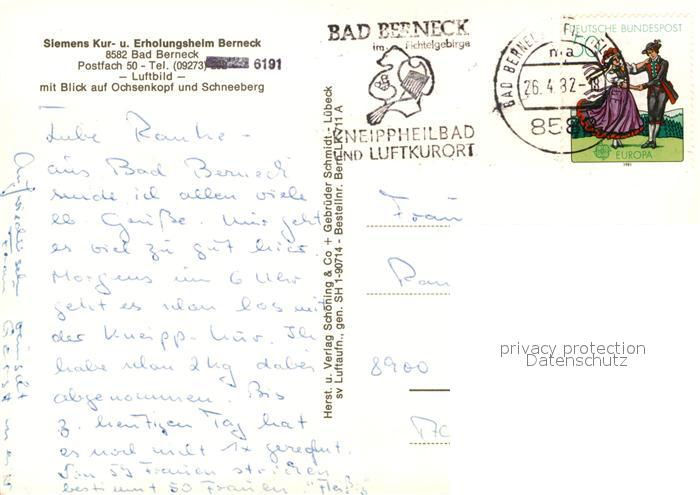 Siemens Kur- u. Erholungsheim Berneck
8582 Bad Berneck
Postfach 50 - Tel. (09273) 6191
— Luftbild —
mit Blick auf Ochsenkopf und Schneeberg
BAD BERNECK
im Fichtelgebirge
KNEIPPHEILBAD
UND LUFTKURORT
BAD BERNECK
26.4.82-18
858
DEUTSCHE BUNDESPOST
50
EUROPA
1981
Herst. u. Verlag Schöning & Co + Gebrüder Schmidt - Lübeck
sv Luftaufn., gen. SH 1-90714 - Bestellnr. Bern LK 11 A
Liebe
aus Bad Berneck
sende ich allen viele
lb. Grüße. Mir geht
es viel zu gut hier.
Morgens um 6 Uhr
geht es schon los mit
der Kneipp-Kur. Ich
habe schon 2 kg dabei
abgenommen. Bis
z. heutigen Tag hat
es noch nicht 1x geregnet.
Von 59 Frauen stricken
bestimmt 50 Frauen "
Auf wiedersehn
8900
privacy protection
Datenschutz